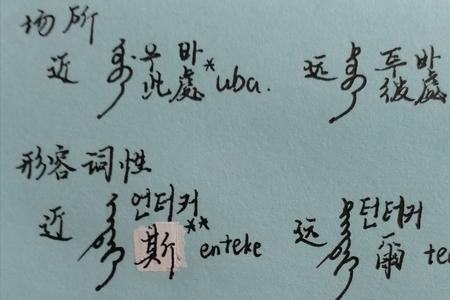 场所
近 ᡠᠪᠠ 우 바 远 ᡨᡠᠪᠠ 투 바
此處* uba. 彼處
形容词性
近 ᡝᠨᡨᡝᡴᡝ 언터커 远 ᡨᡝᠨᡨᡝᡴᡝ 턴터커
斯** enteke 爾 te